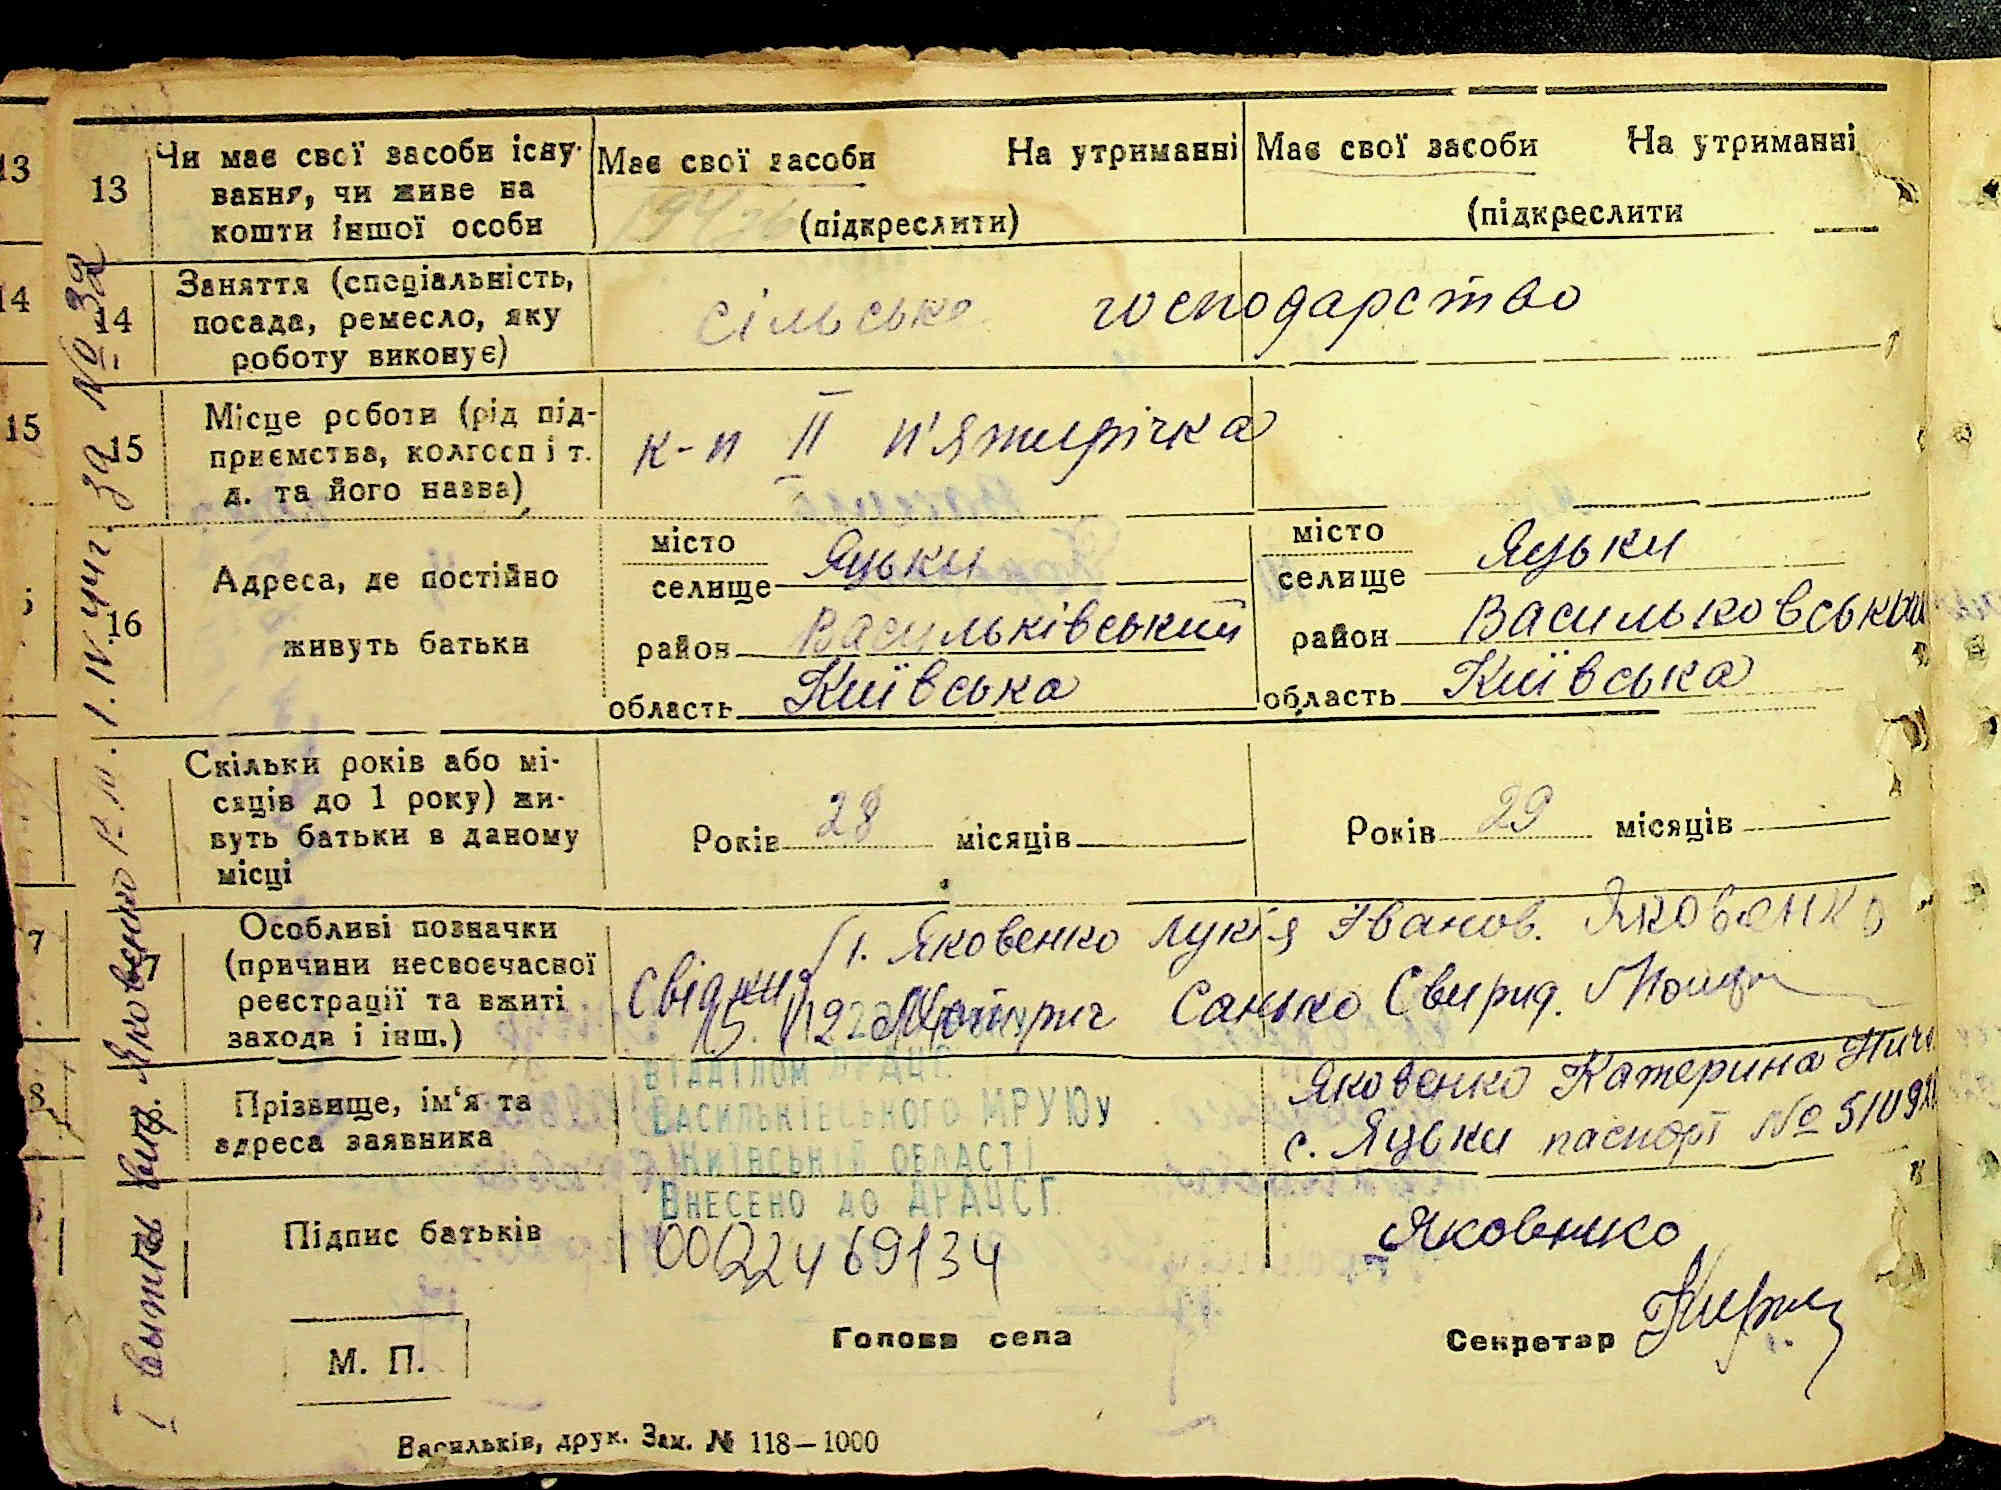 13
Чи має свої засоби існу-
вання, чи живе на
кошти іншої особи
Має свої засоби На утриманні
(підкреслити)
Має свої засоби На утриманні
(підкреслити
14
Заняття (спеціальність,
посада, ремесло, яку
роботу виконує)
сільське господарство
15
Місце роботи (рід під-
приємства, колгосп і т.
д. та його назва)
к-п II п'ятирічка
16
Адреса, де постійно
живуть батьки
місто
селище Яцьки
район Васильківський
область Київська
місто
селище Яцьки
район Васильковський
область Київська
Скільки років або мі-
сяців до 1 року) жи-
вуть батьки в даному
місці
Років 28 місяців
Років 29 місяців
17
Особливі позначки
(причини несвоєчасної
реєстрації та вжиті
заходи і інш.)
Свідки 1. Яковенко Лукія Іванов. Яковенко
2. Санько Свирид.
Прізвище, ім'я та
адреса заявника
Яковенко Катерина
с. Яцьки паспорт №
Відділом ДРАЦС
Васильківського МРУЮу
Київській області
Внесено до ДРАЦСГ.
0022469134
Підпис батьків
Яковенко
М. П.
Голова села
Секретар
Васильків, друк. Зам. № 118—1000
13
14
15
7
8